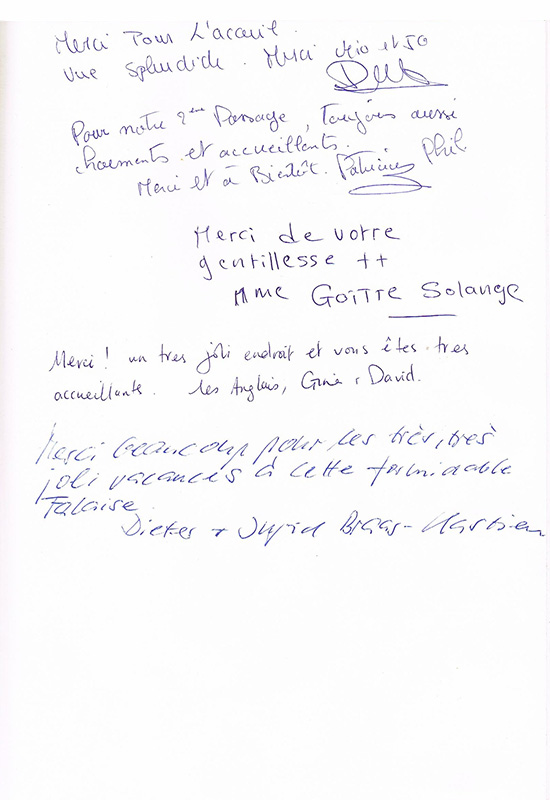 Merci Pour L'acceuil.
Vue Splendide. Merci et Jo
Pour notre 2ème Passage, Toujours aussi
charments et accueillants.
Merci et à Bientôt. Patricia Phil
Merci de votre
gentillesse ++
Mme Goïtre Solange
Merci! un tres joli endroit et vous êtes tres
accueillante. les Anglais, Gina & David.
Merci beaucoup pour les très, très
joli vacances à cette formidable
Falaise.
Dieter + Ingrid